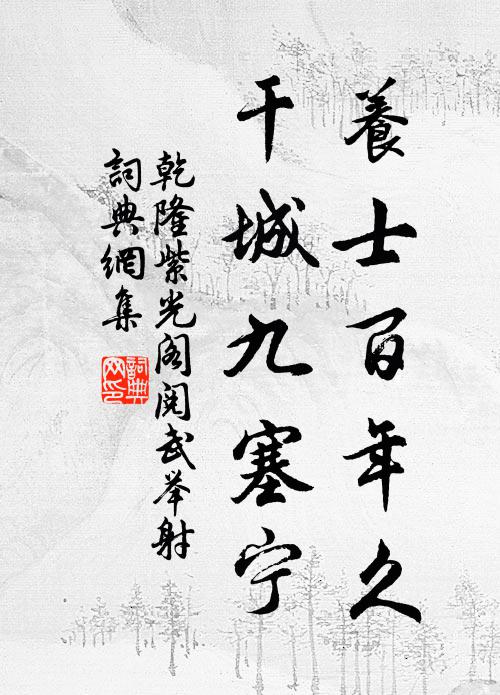 養士百年久
干城九塞宁
乾隆紫光阁閱武举射
詞典網集
詞典
网印